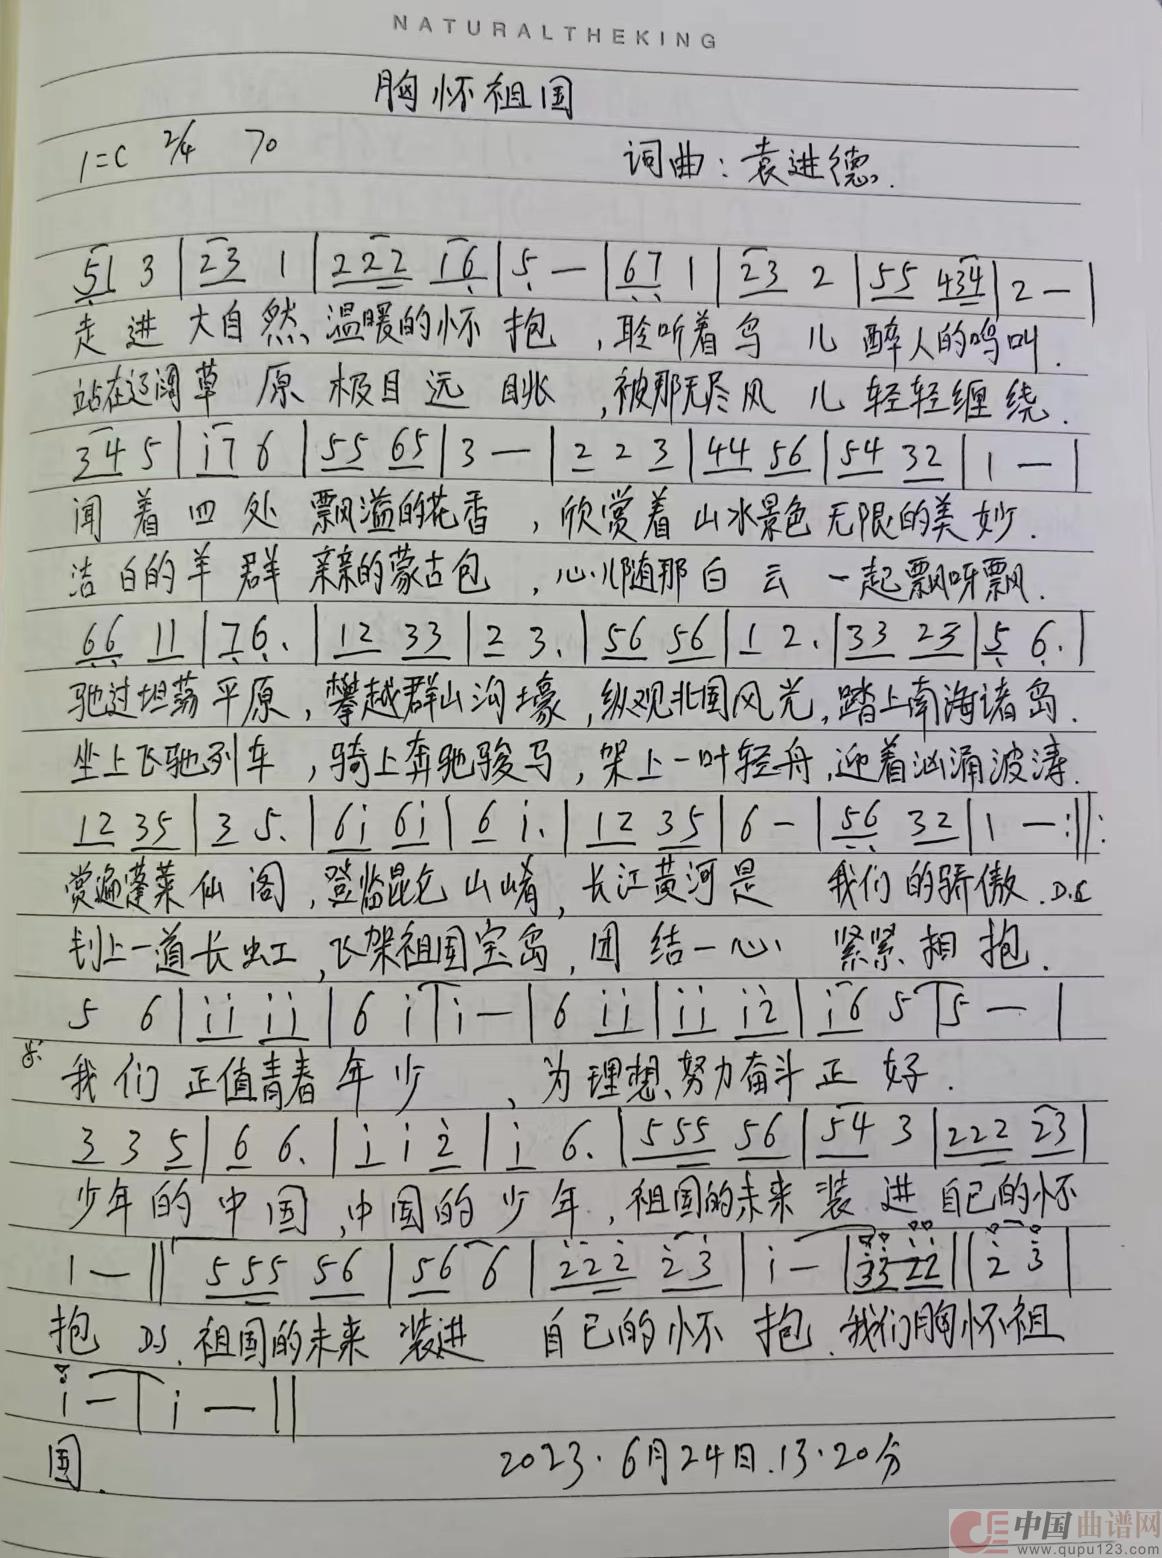 NATURALTHEKING
胸怀祖国
1=C 2/4 70 词曲：袁进德.
51 3 | 23 1 | 222 16 | 5 — | 67 1 | 23 2 | 55 434 | 2 — |
走进大自然温暖的怀抱，聆听着鸟儿醉人的鸣叫.
站在辽阔草原极目远眺，被那无尽风儿轻轻缠绕.
34 5 | i7 6 | 55 65 | 3 — | 2 2 3 | 44 56 | 54 32 | 1 — |
闻着四处飘溢的花香，欣赏着山水景色无限的美妙.
洁白的羊群亲亲的蒙古包，心儿随那白云一起飘呀飘.
66 11 | 76. | 12 33 | 2 3. | 56 56 | 1 2. | 33 23 | 5 6. |
驰过坦荡平原，攀越群山沟壕，纵观北国风光，踏上南海诸岛.
坐上飞驰列车，骑上奔驰骏马，架上一叶轻舟，迎着汹涌波涛.
12 35 | 3 5. | 6i 6i | 6 i. | 12 35 | 6 — | 56 32 | 1 — :||:
赏遍蓬莱仙阁，登临昆仑山崤，长江黄河是我们的骄傲. D.C
划上一道长虹，飞架祖国宝岛，团结一心紧紧相抱.
5 6 | ii ii | 6 i | i — | 6 ii | ii i2 | i6 5 | 5 — |
我们正值青春年少，为理想、努力奋斗正好.
3 3 5 | 6 6. | i i 2 | i 6. | 555 56 | 54 3 | 222 23 |
少年的中国，中国的少年，祖国的未来装进自己的怀
1 — || 555 56 | 56 6 | 222 23 | i — | 33 22 || 2 3 |
抱 DS. 祖国的未来装进自己的怀抱.我们胸怀祖
i — | i — ||
国.
2023.6月24日.13.20分
中国曲谱网
www.qupu123.com